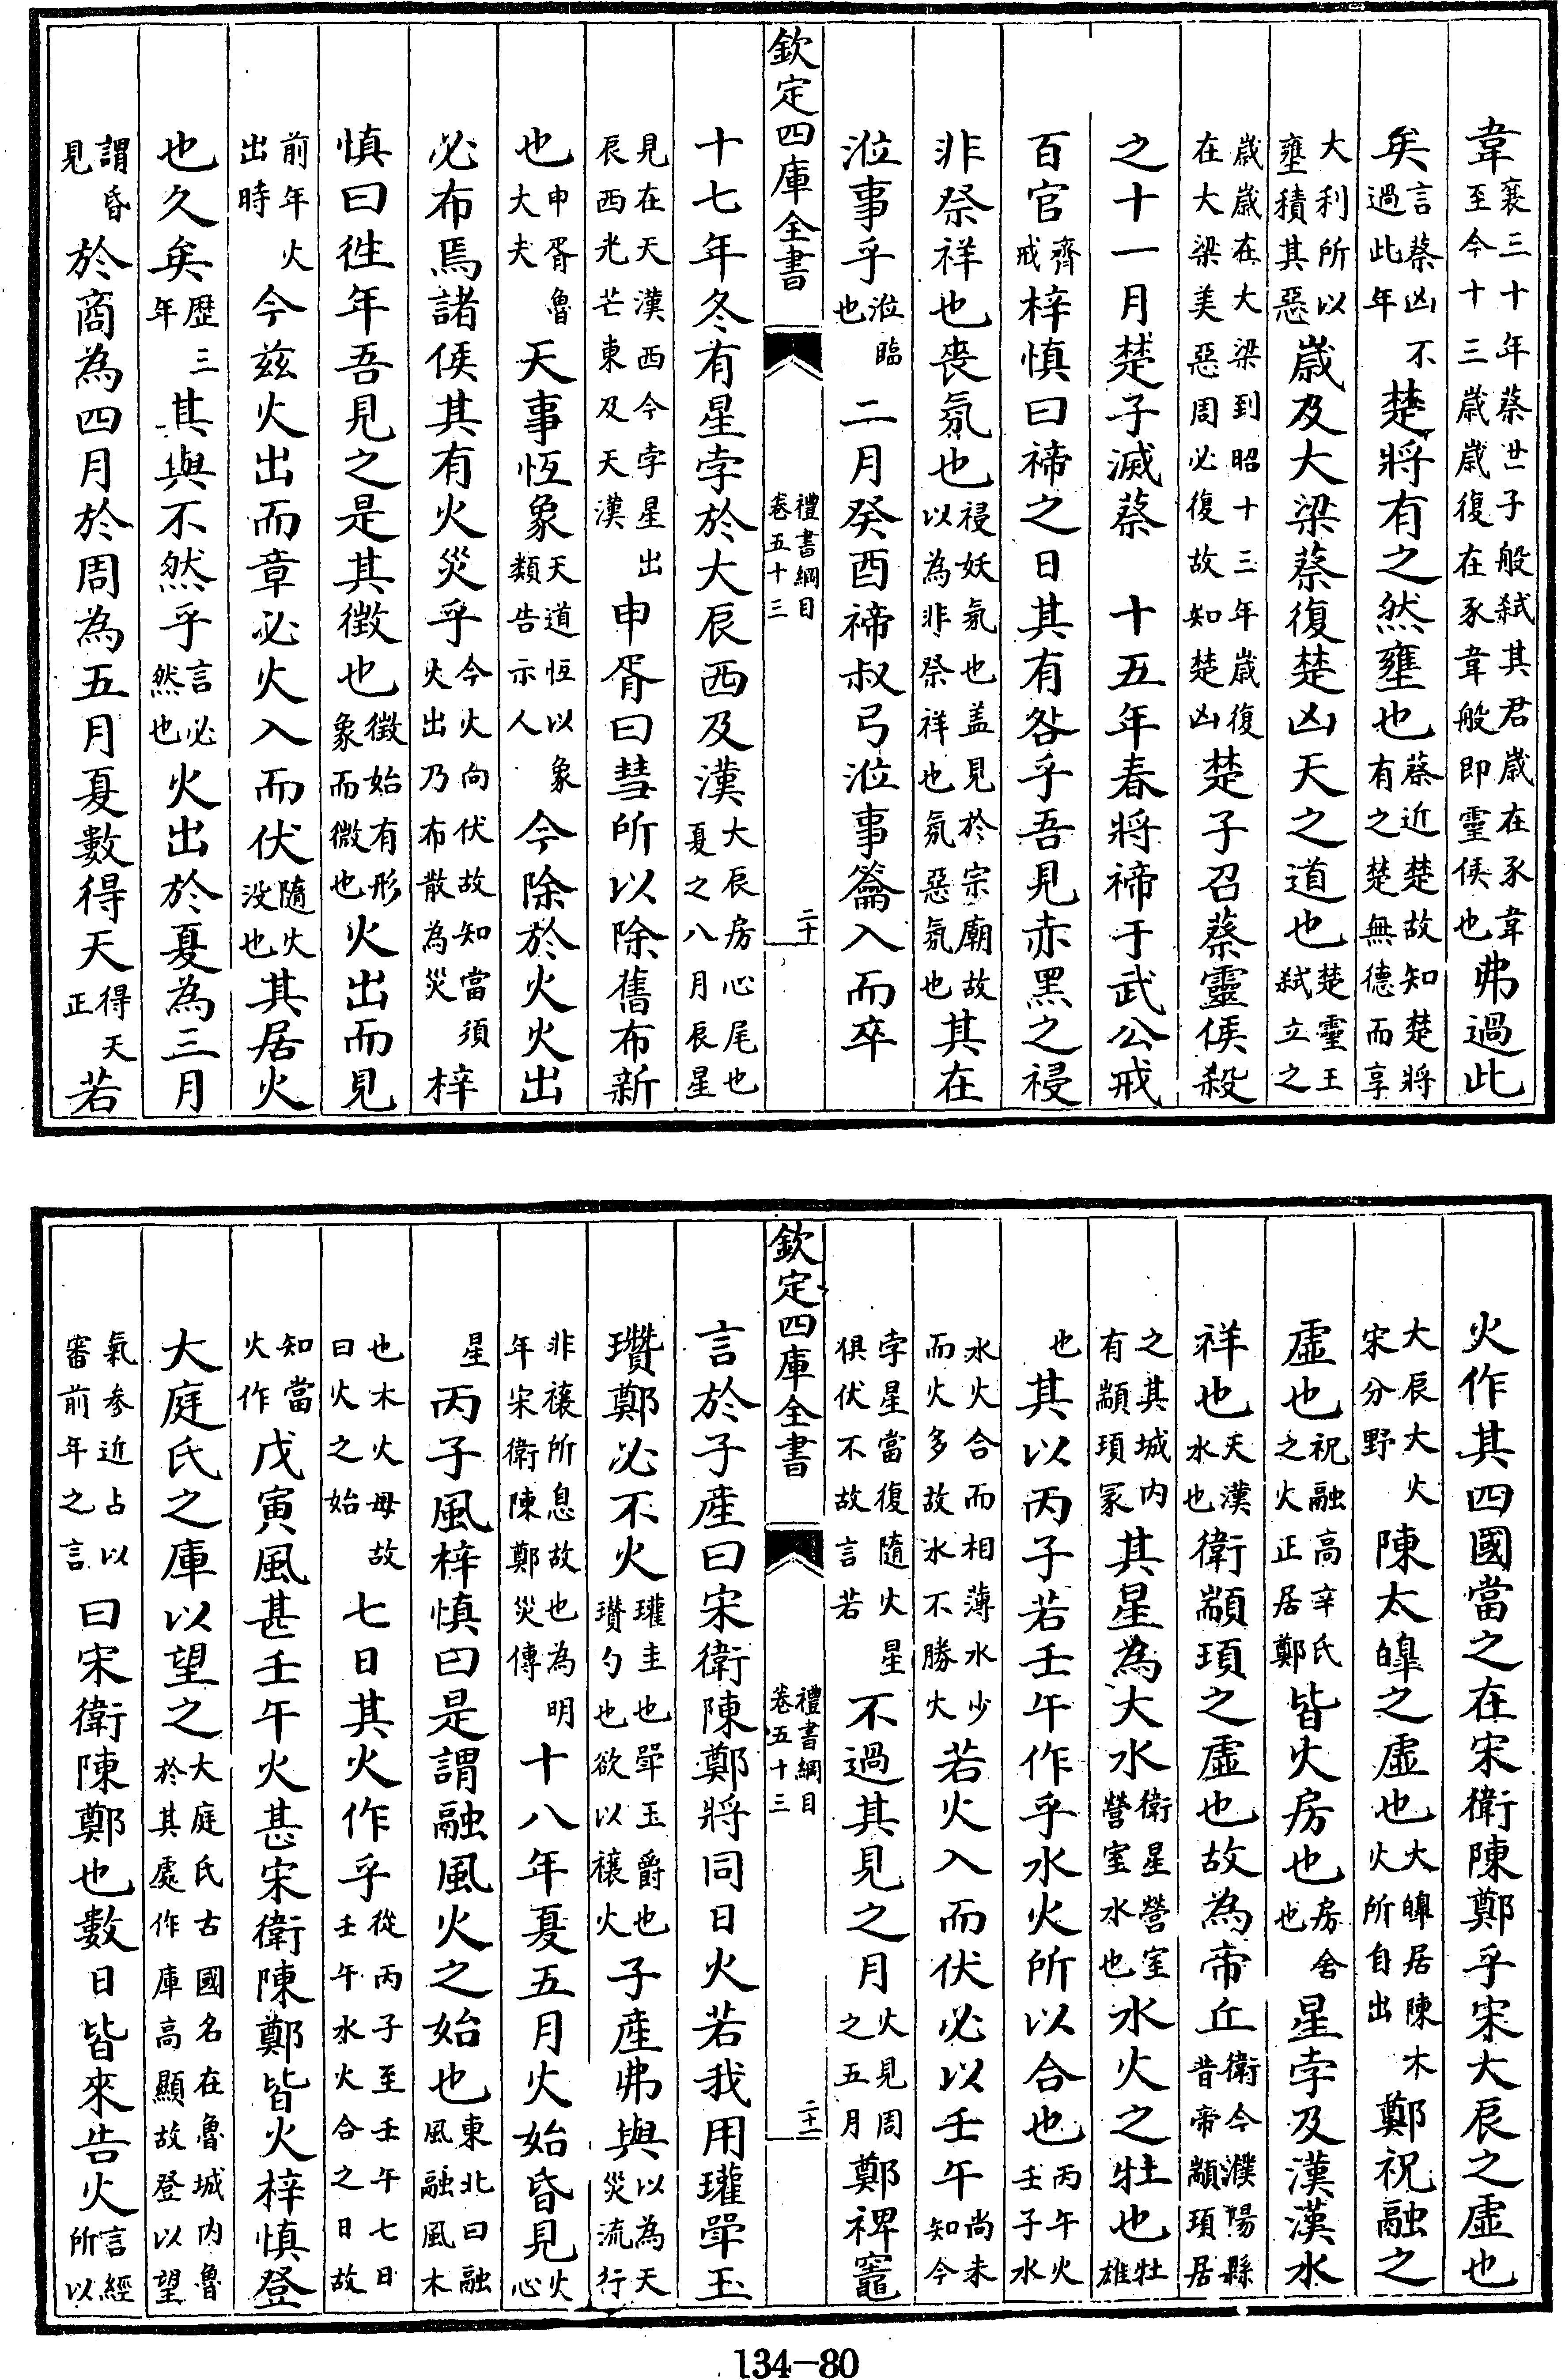 韋襄三十年蔡世子般弑其君歲在豕韋至今十三歲歲復在豕韋般即靈侯也弗過此
矣言蔡凶不過此年楚將有之然壅也蔡近楚故知楚將有之楚無德而享
大利所以壅積其惡歲及大梁蔡復楚凶天之道也楚靈王弑立之
歲歲在大梁到昭十三年歲復在大梁美惡周必復故知楚凶楚子召蔡靈侯殺
之十一月楚子滅蔡　十五年春將禘于武公戒
百官齊戒梓慎曰禘之日其有咎乎吾見赤黑之祲
非祭祥也喪氛也祲妖氛也盖見於宗廟故以為非祭祥也氛惡氛也其在
涖事乎涖臨也二月癸酉禘叔弓涖事籥入而卒
欽定四庫全書　禮書綱目卷五十三　二十
十七年冬有星孛於大辰西及漢大辰房心尾也夏之八月辰星
見在天漢西今孛星出辰西光芒東及天漢申胥曰彗所以除舊布新
也申胥魯大夫天事恆象天道恆以象類告示人今除於火火出
必布焉諸侯其有火災乎今火向伏故知當須火出乃布散為災梓
慎曰徃年吾見之是其徴也徴始有形象而微也火出而見
前年火出時今兹火出而章必火入而伏隨火没也其居火
也久矣歷三年其與不然乎言必然也火出於夏為三月
謂昏見於商為四月於周為五月夏數得天得天正若
火作其四國當之在宋衛陳鄭乎宋大辰之虛也
大辰大火宋分野陳太皥之虛也大皥居陳木火所自出鄭祝融之
虛也祝融高辛氏之火正居鄭皆火房也房舍也星孛及漢漢水
祥也天漢水也衛顓頊之虛也故為帝丘衛今濮陽縣昔帝顓頊居
之其城内有顓頊冢其星為大水衛星營室營室水也水火之牡也牡雄
也其以丙子若壬午作乎水火所以合也丙午火壬子水
水火合而相薄水少而火多故水不勝火若火入而伏必以壬午尚未知今
孛星當復隨火星俱伏不故言若不過其見之月火見周之五月鄭裨竈
欽定四庫全書　禮書綱目卷五十三　二十一
言於子產曰宋衛陳鄭將同日火若我用瓘斝玉
瓚鄭必不火瓘圭也斝玉爵也瓚勺也欲以禳火子產弗與以為天災流行
非禳所息故也為明年宋衛陳鄭災傳十八年夏五月火始昏見火心
星丙子風梓慎曰是謂融風火之始也東北曰融風融風木
也木火母故曰火之始七日其火作乎從丙子至壬午七日壬午水火合之日故
知當火作戊寅風甚壬午火甚宋衛陳鄭皆火梓慎登
大庭氏之庫以望之大庭氏古國名在魯城内魯於其處作庫高顯故登以望
氣參近占以審前年之言曰宋衛陳鄭也數日皆來告火言經所以
134-80